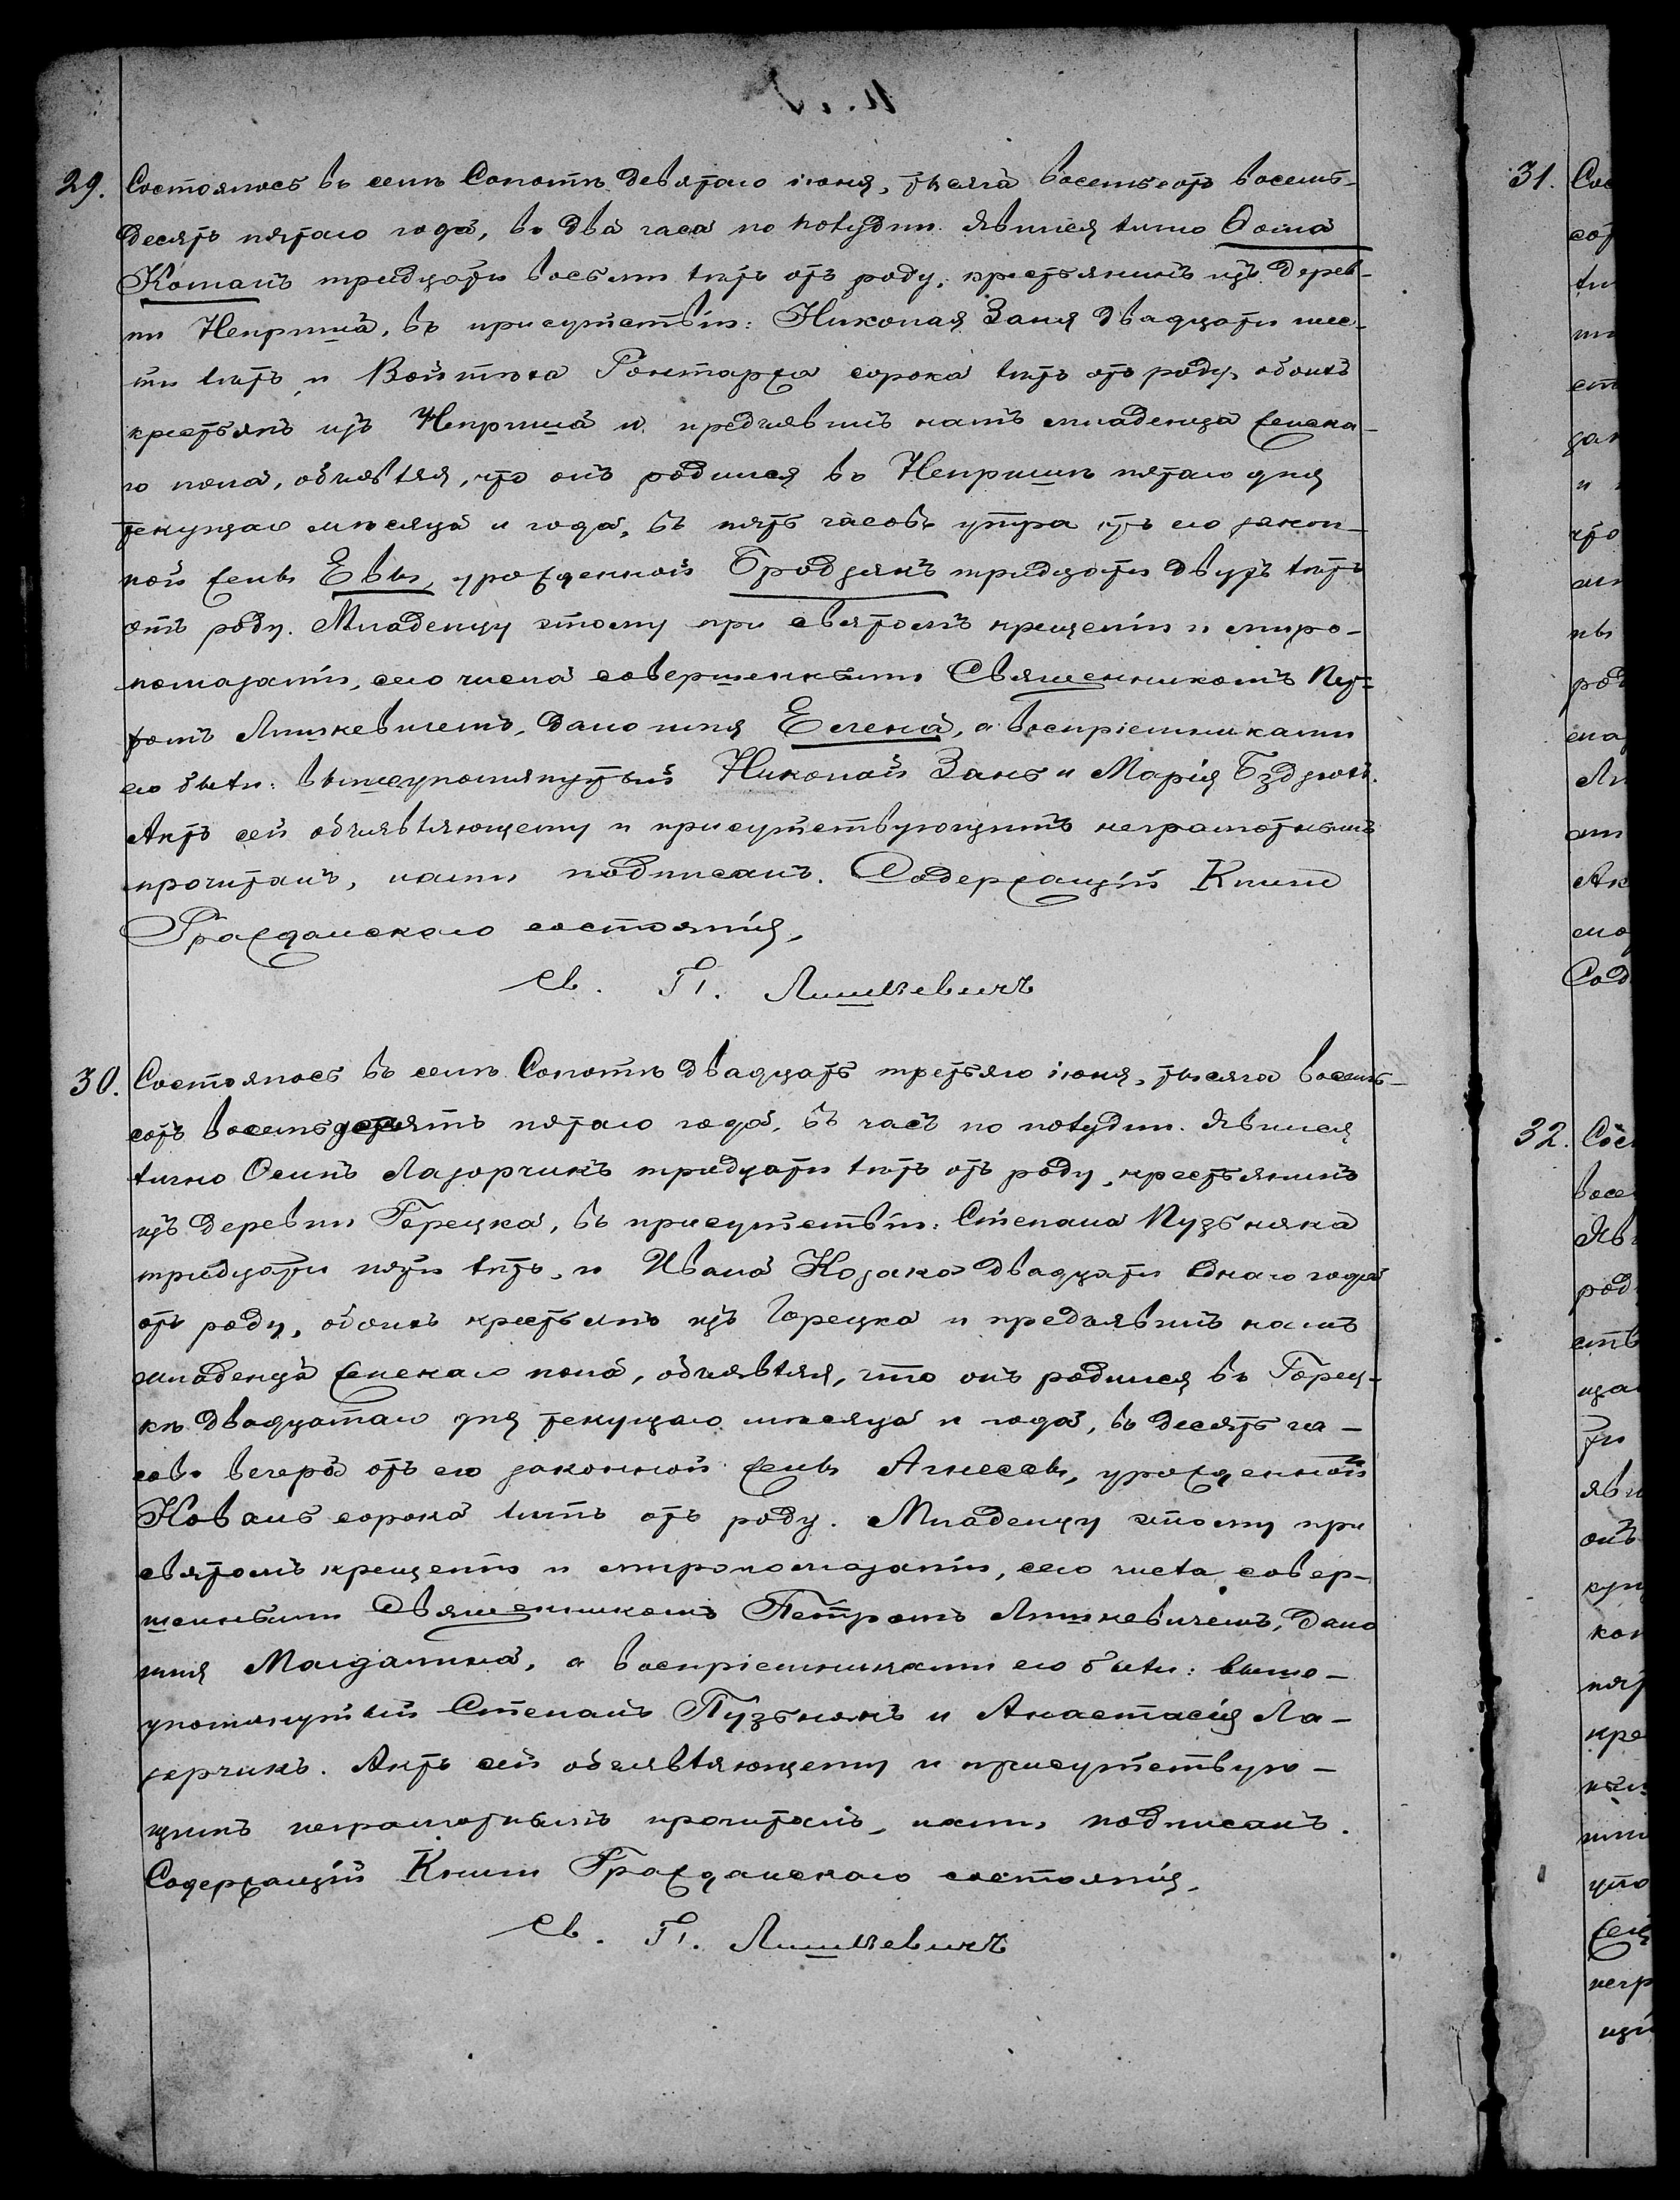 29. Состоялось въ селѣ Сопотѣ девятаго іюня, тысяча восемьсотъ восемь-
десятъ пятаго года, въ два часа по полудни. Явился лично Ѳома
Команъ тридцати восьми лѣтъ отъ роду, крестьянинъ изъ дерев-
ни Неприша, въ присутствіи: Николая Заня двадцати шес-
ти лѣтъ, и Войтѣха Гонтаржа сорока лѣтъ отъ роду, обоихъ
крестьянъ изъ Неприша и предъявилъ намъ младенца женска-
го пола, объявляя, что онъ родился въ Непришѣ пятаго дня
текущаго мѣсяца и года, въ пять часовъ утра отъ его закон-
ной жены Евы, урожденной Бродзякъ тридцати двухъ лѣтъ
отъ роду. Младенцу этому при святомъ крещеніи и миро-
помазаніи, сего числа совершенными Священникомъ Пет-
ромъ Лишкевичемъ, дано имя Елена, а воспріемниками
его были: вышеупомянутый Николай Зань и Марія Бздзюхъ.
Актъ сей объявляющему и присутствующимъ неграмотнымъ
прочитанъ, нами подписанъ. Содержащій Книги
Гражданскаго состоянія,
Св. П. Лишкевичъ
30. Состоялось въ селѣ Сопотѣ двадцать третьяго іюня, тысяча восемь-
сотъ восемьдесятъ пятаго года, въ часъ по полудни. Явился
лично Осипъ Лазорчикъ тридцати лѣтъ отъ роду, крестьянинъ
изъ деревни Горецка, въ присутствіи: Степана Пузьняка
тридцати пяти лѣтъ, и Ивана Козака двадцати однаго года
отъ роду, обоихъ крестьянъ изъ Горецка и предъявилъ намъ
младенца женскаго пола, объявляя, что онъ родился въ Горец-
кѣ двадцатаго дня текущаго мѣсяца и года, въ десять ча-
совъ вечера отъ его законной жены Агнессы, урожденной
Коваль сорока лѣтъ отъ роду. Младенцу этому при
святомъ крещеніи и миропомазаніи, сего числа совер-
шенными Священникомъ Петромъ Лишкевичемъ, дано
имя Магдалина, а воспріемниками его были: выше-
упомянутый Степанъ Пузьнякъ и Анастасія Ла-
зорчикъ. Актъ сей объявляющему и присутствую-
щимъ неграмотнымъ прочитанъ, нами подписанъ.
Содержащій Книги Гражданскаго состоянія,
Св. П. Лишкевичъ
31.
32.